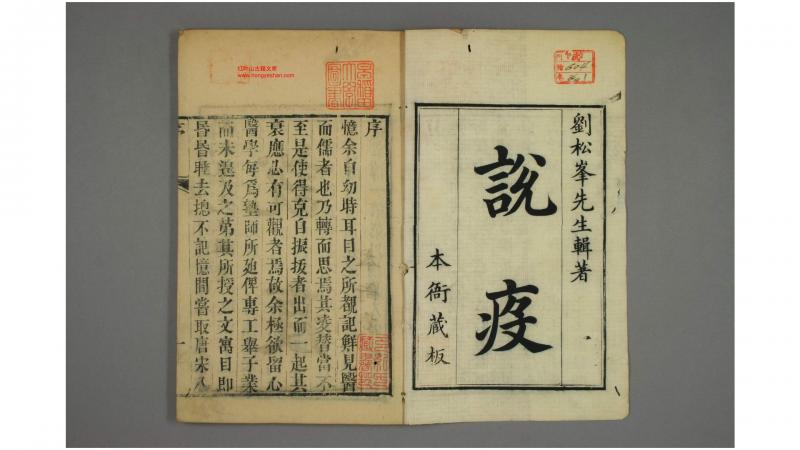 劉松峯先生輯著
說疫
本衙藏板
序
憶余自幼時耳目之所覩記鮮見醫
而儒者也乃轉而思焉其凌替當不
至是使得克自振拔者出而一起其
衰應必有可觀者焉故余極欲留心
醫學每爲塾師所廹俾專工舉子業
而未遑及之第其所授之文寓目即
昏昏睡去揔不記憶間嘗取唐宋八
序
一
红叶山古籍文库
www.hongyeshan.com
604